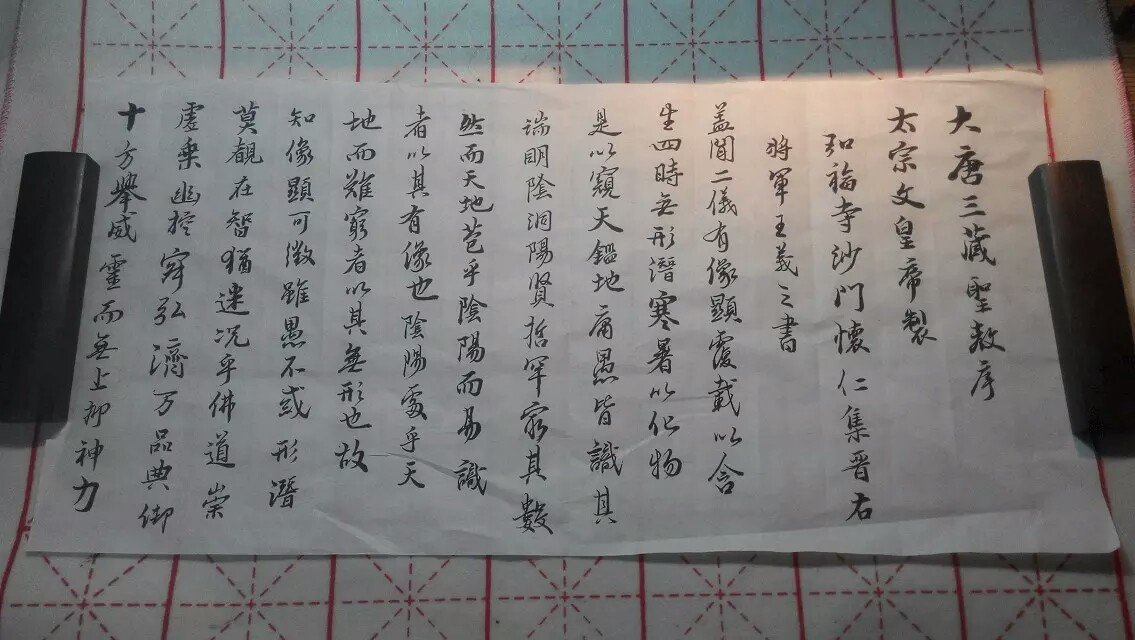 大唐三藏聖教序
太宗文皇帝製
弘福寺沙門懷仁集晉右
將軍王羲之書
蓋聞二儀有像顯覆載以含
生四時無形潛寒暑以化物
是以窺天鑑地庸愚皆識其
端明陰洞陽賢哲罕窮其數
然而天地苞乎陰陽而易識
者以其有像也陰陽處乎天
地而難窮者以其無形也故
知像顯可徵雖愚不惑形潛
莫覩在智猶迷况乎佛道崇
虛乘幽控寂弘濟万品典御
十方舉威靈而無上抑神力